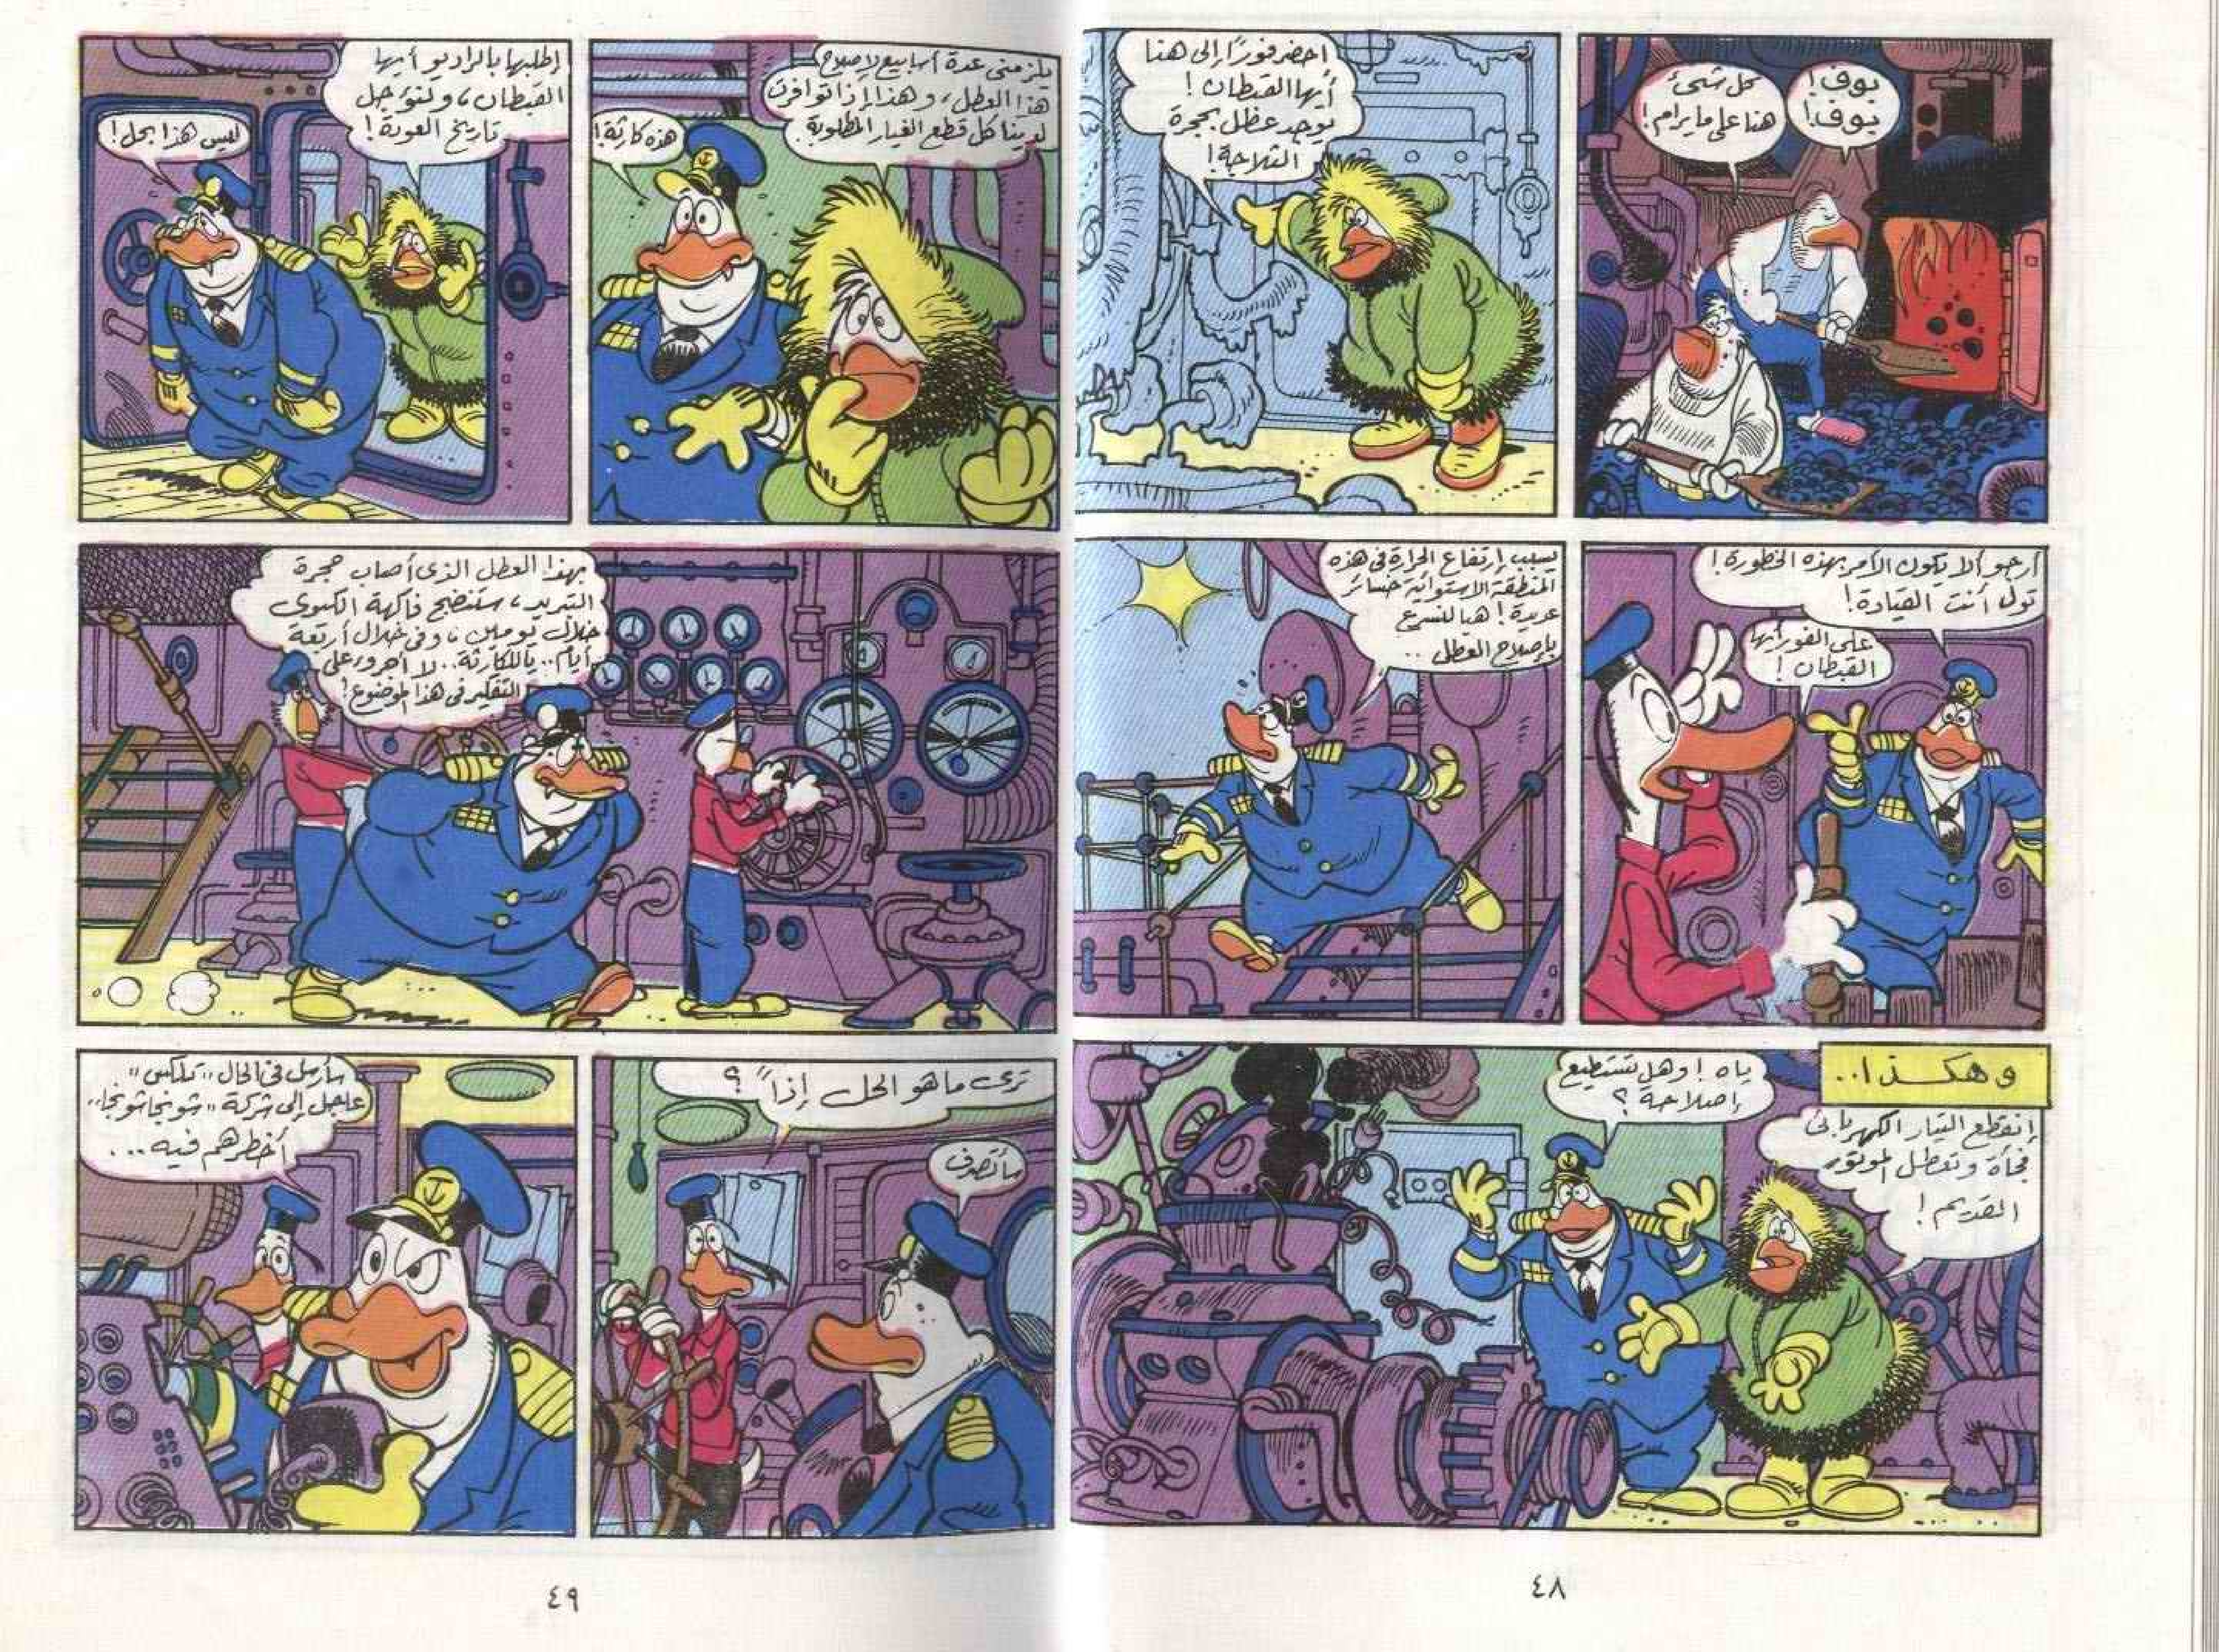 بوف!
بوف!
كل شئ
هنا على ما يرام!
احضر فورًا إلى هنا
أيها القبطان!
يوجد عطل بحجرة
الثلاجة!
أرجو ألا يكون الأمر بهذه الخطورة!
تول أنت القيادة!
على الفور أيها
القبطان!
بسبب إرتفاع الحرارة فى هذه
المنطقة الاستوائية خسائر
عديدة! هيا لنسرع
بإصلاح العطل ..
وهكذا..
إنقطع التيار الكهربائى
فجأة وتعطل الموتور
القديم!
ياه! وهل تستطيع
إصلاحه؟
يلزمنى عدة أسابيع لإصلاح
هذا العطل، وهذا إذا توافرت
لدينا كل قطع الغيار المطلوبة
هذه كارثة!
إطلبها بالراديو أيها
القبطان، ولنؤجل
تاريخ العودة!
ليس هذا بحل!
بهذا العطل الذى أصاب حجرة
التبريد، ستنضج فاكهة الكيوى
خلال يومين، وفى خلال أربعة
أيام.. ياللكارثة.. لا أجرؤ على
التفكير فى هذا الموضوع!
ترى ما هو الحل إذاً؟
سأتصرف
سأرسل فى الحال "تلكس"
عاجل إلى شركة "شونجا شونجا"
أخطرهم فيه ...
٤٨
٤٩